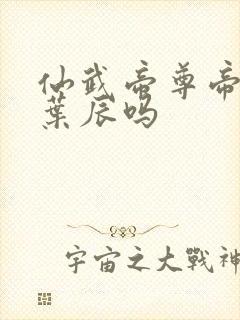 仙武帝尊帝
葉辰吗
宇宙之大戰神